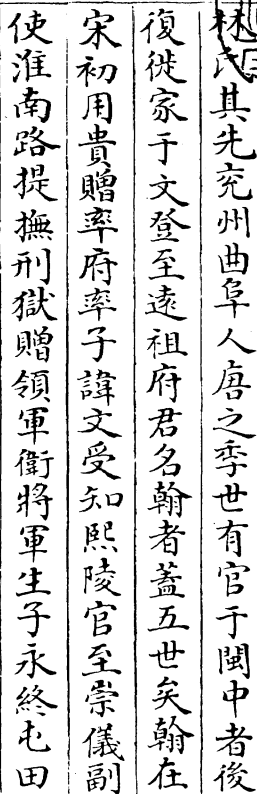 林氏其先兖州曲阜人唐之季世有官于閩中者後
復徙家于文登至遠祖府君名翰者蓋五世矣翰在
宋初用貴贈率府率子諱文受知熙陵官至崇儀副
使淮南路提撫刑獄贈領軍衛將軍生子永終屯田